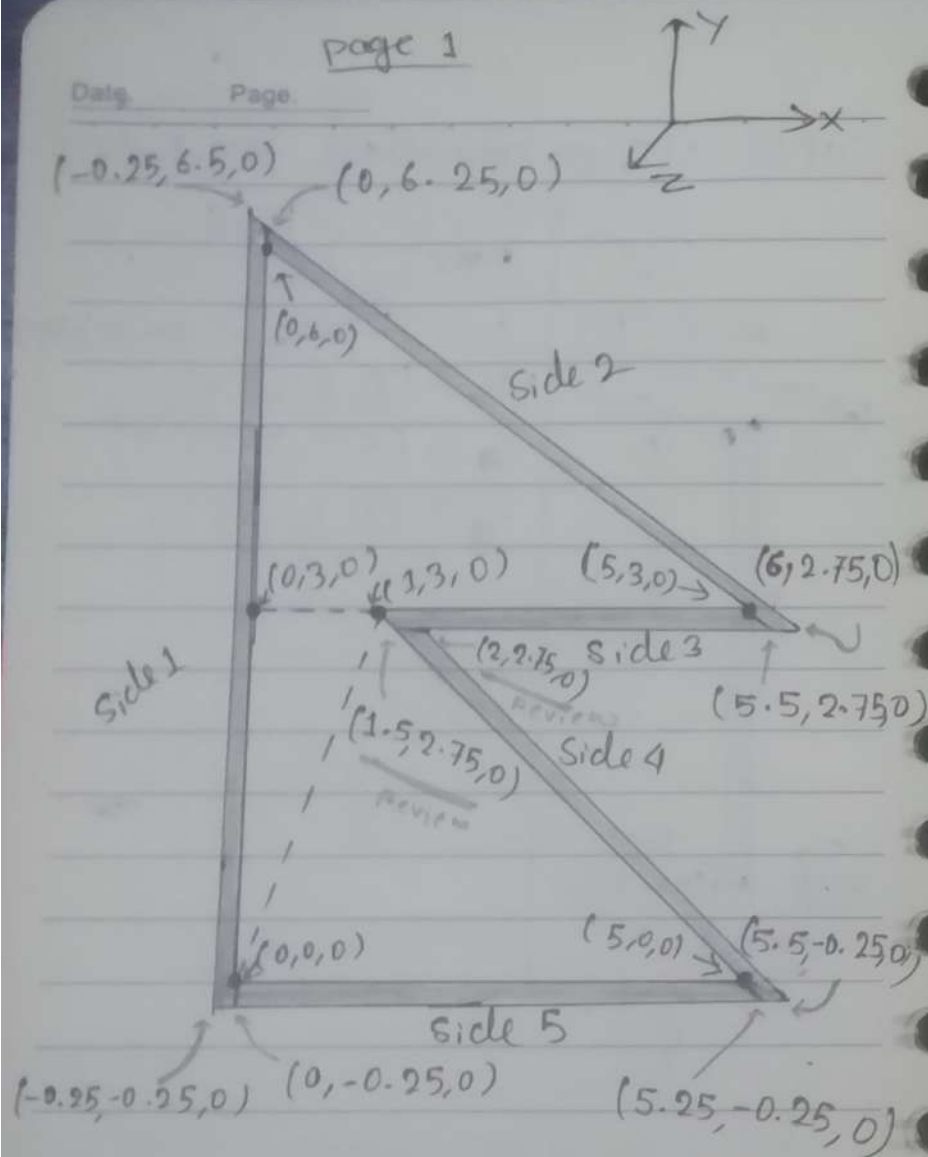 page 1
Y
Date Page
X
Z
(-0.25, 6.5, 0)
(0, 6.25, 0)
(0,6,0)
Side 2
(0,3,0)
(1,3,0)
(5,3,0)
(6, 2.75, 0)
(2, 2.75, 0)
Side 3
review
(5.5, 2.75, 0)
Side 1
(1.5, 2.75, 0)
Side 4
review
(0,0,0)
(5,0,0)
(5.5, -0.25, 0)
Side 5
(-0.25, -0.25, 0)
(0, -0.25, 0)
(5.25, -0.25, 0)